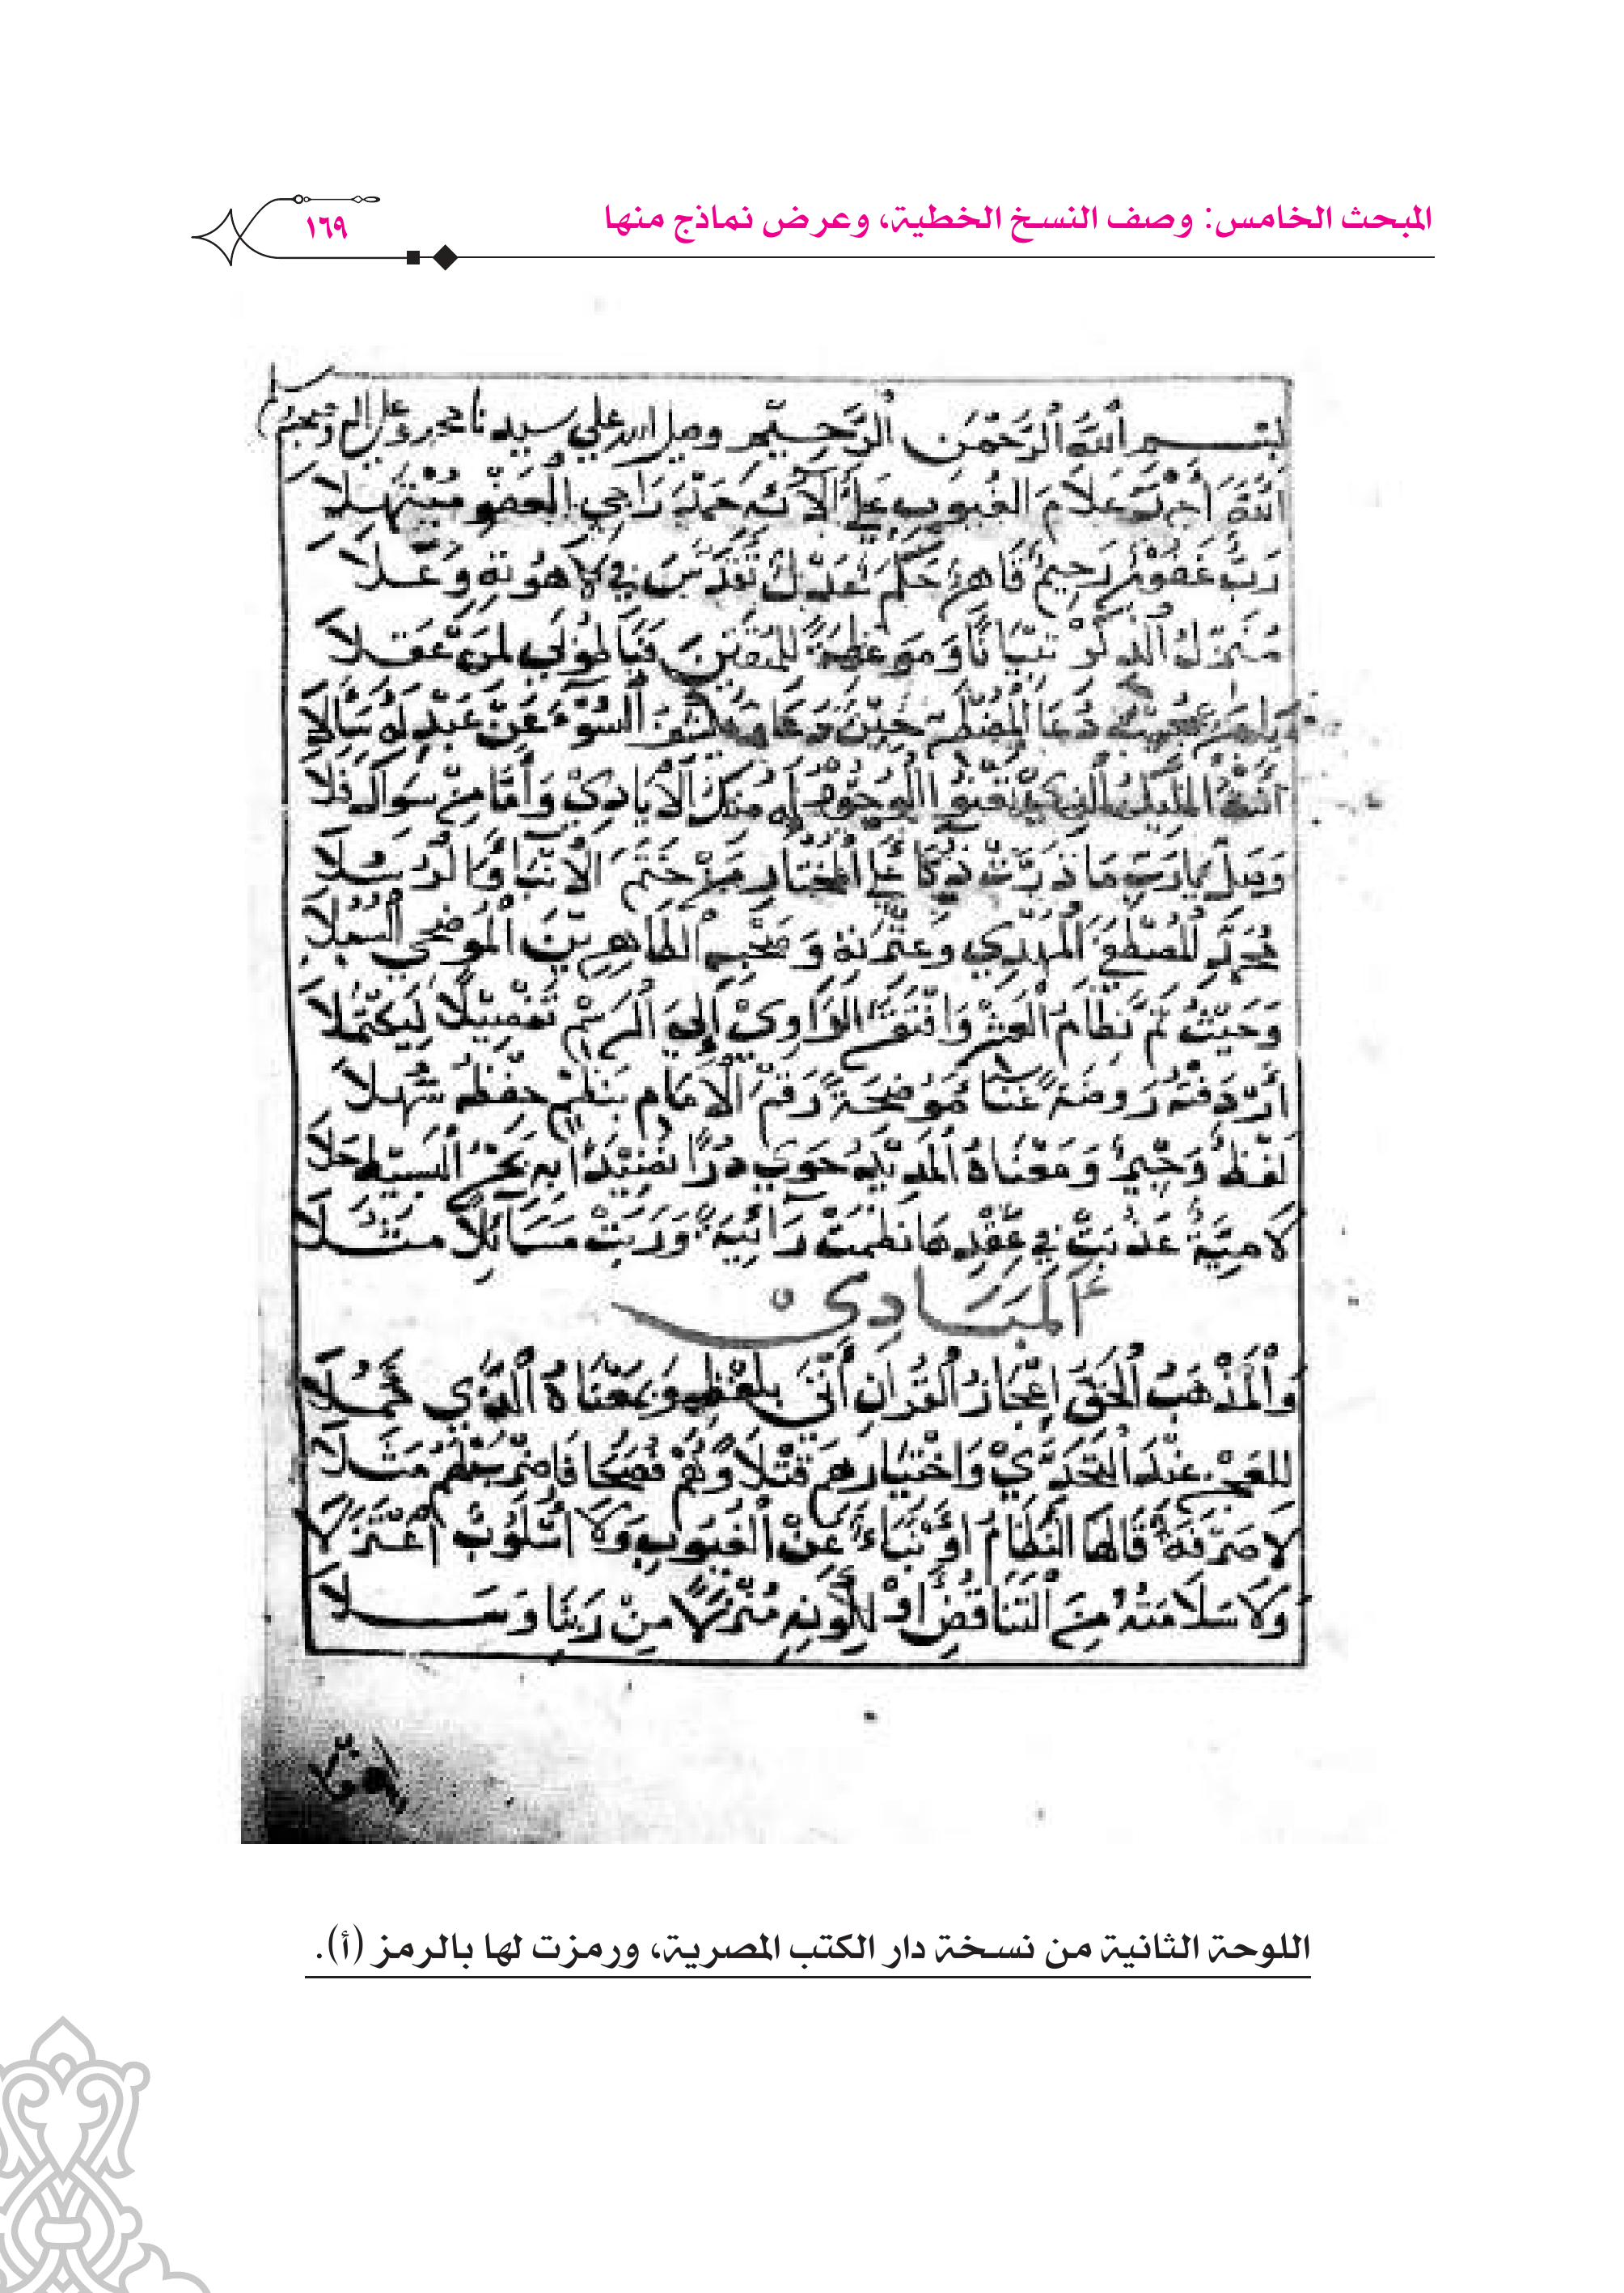 المبحث الخامس: وصف النسخ الخطية، وعرض نماذج منها
١٦٩
بسم ٱلله ٱلرَّحْمَن ٱلرَّحِيم وصلى الله على سيدنا محمد وعلى اله وصحبه وسلم
اللهَ أحمد علَّامَ الغيوب على آلائه حمدَ راجي العفو مبتهلا
ربٌّ غفورٌ رحيمٌ قاهرٌ حكمٌ عدل تقدَّسَ في لاهوته وعلا
مُنَزِّل الذكر تبيانًا وموعظةً للمتقين لمن عقلا
دعا المضطر حين دعاه السوء عن عبد له سألا
الوجوه له منك الأيادي وأمّا من سواك فلا
وصلِّ يا ربِّ ما ذرَّت ذُكا على المختار من ختم الأنبيا والرسلا
محمد المصطفى المهدي وعترته وصحبه الطاهرين الموضحي السبلا
وحيثُ تمَّ نظامُ العشر وافتقر الراوي إلى الرسم تفصيلًا ليكتملا
أردفته روضةً غنّا موضحةً رقم الإمام بنظمٍ حفظه سهلا
لفظٌ وجيزٌ ومعناهُ المديد حوى درًّا نضيدًا به بحر البسيط حلا
لاميةٌ عذبت في عقدها نظمت رائيةً وربت مسائلًا مثلا
المبادي
والمذهبُ الحقُّ إعجازُ القران أتى بلفظه وبمعناهُ الذي حملا
للعجز عند التحدّي واختيارهم قتلًا وهم فصحا فاضرب بهم مثلا
لا صرفةٌ قالها النظّامُ أو نباءٌ عن الغيوب ولا أسلوبٌ اعتزلا
ولا سلامته من التناقض أو لكونه منزلًا من ربنا وسلا
اللوحة الثانية من نسخة دار الكتب المصرية، ورمزت لها بالرمز (أ).